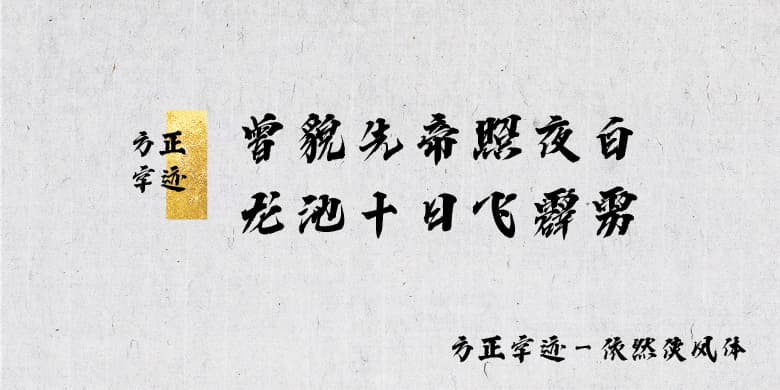 方正
字迹
曾貌先帝照夜白
龙池十日飞霹雳
方正字迹-依然侠风体